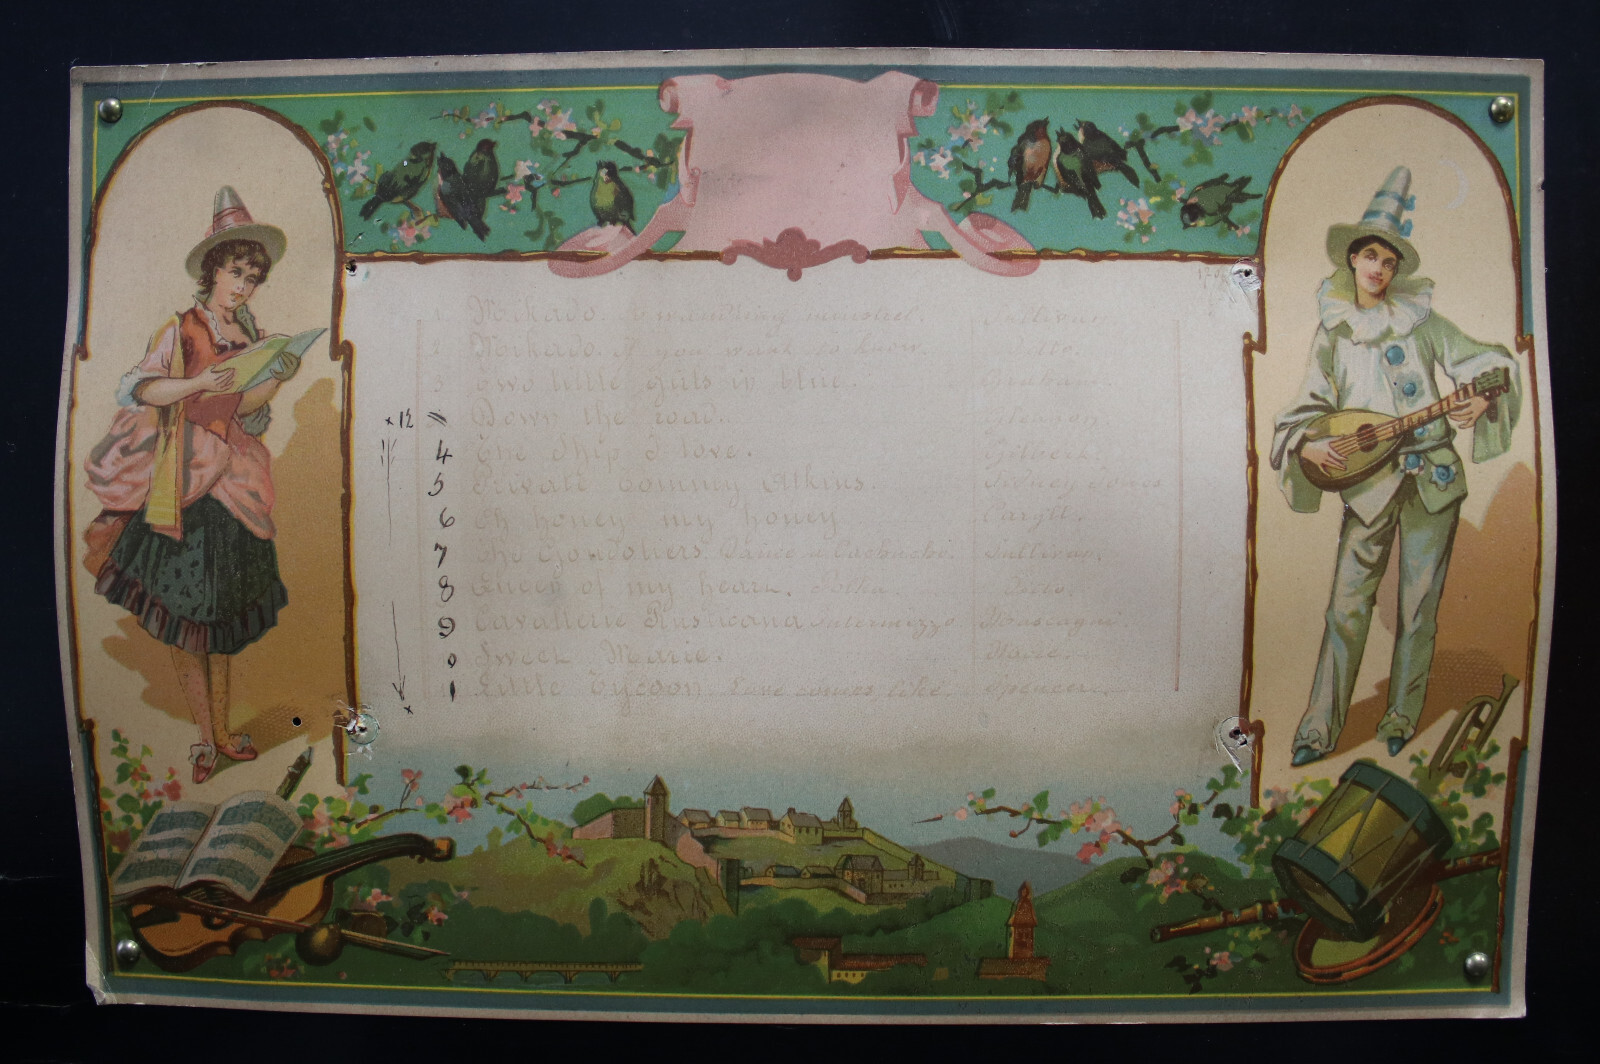 1 Mikado. A wandering minstrel. Sullivan.
2 Mikado. If you want to know Ditto.
3 Two little girls in blue. Graham.
x 12 Down the road.
4 The Ship I love.
5 Private Tommy Atkins. Sidney Jones
6 Oh honey my honey Caryll.
7 The Gondoliers. Dance a Cachucha. Sullivan.
8 Queen of my heart. Polka. Ditto.
9 Cavalleria Rusticana Intermezzo Mascagni
0 Sweet Marie. Moore.
1 Little Tycoon Love comes like. Spencer.
x